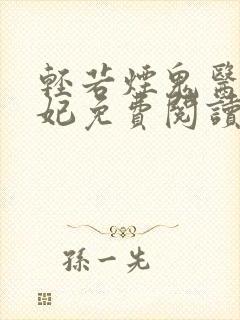 輕若煙鬼醫
妃免費閱讀
孫一先